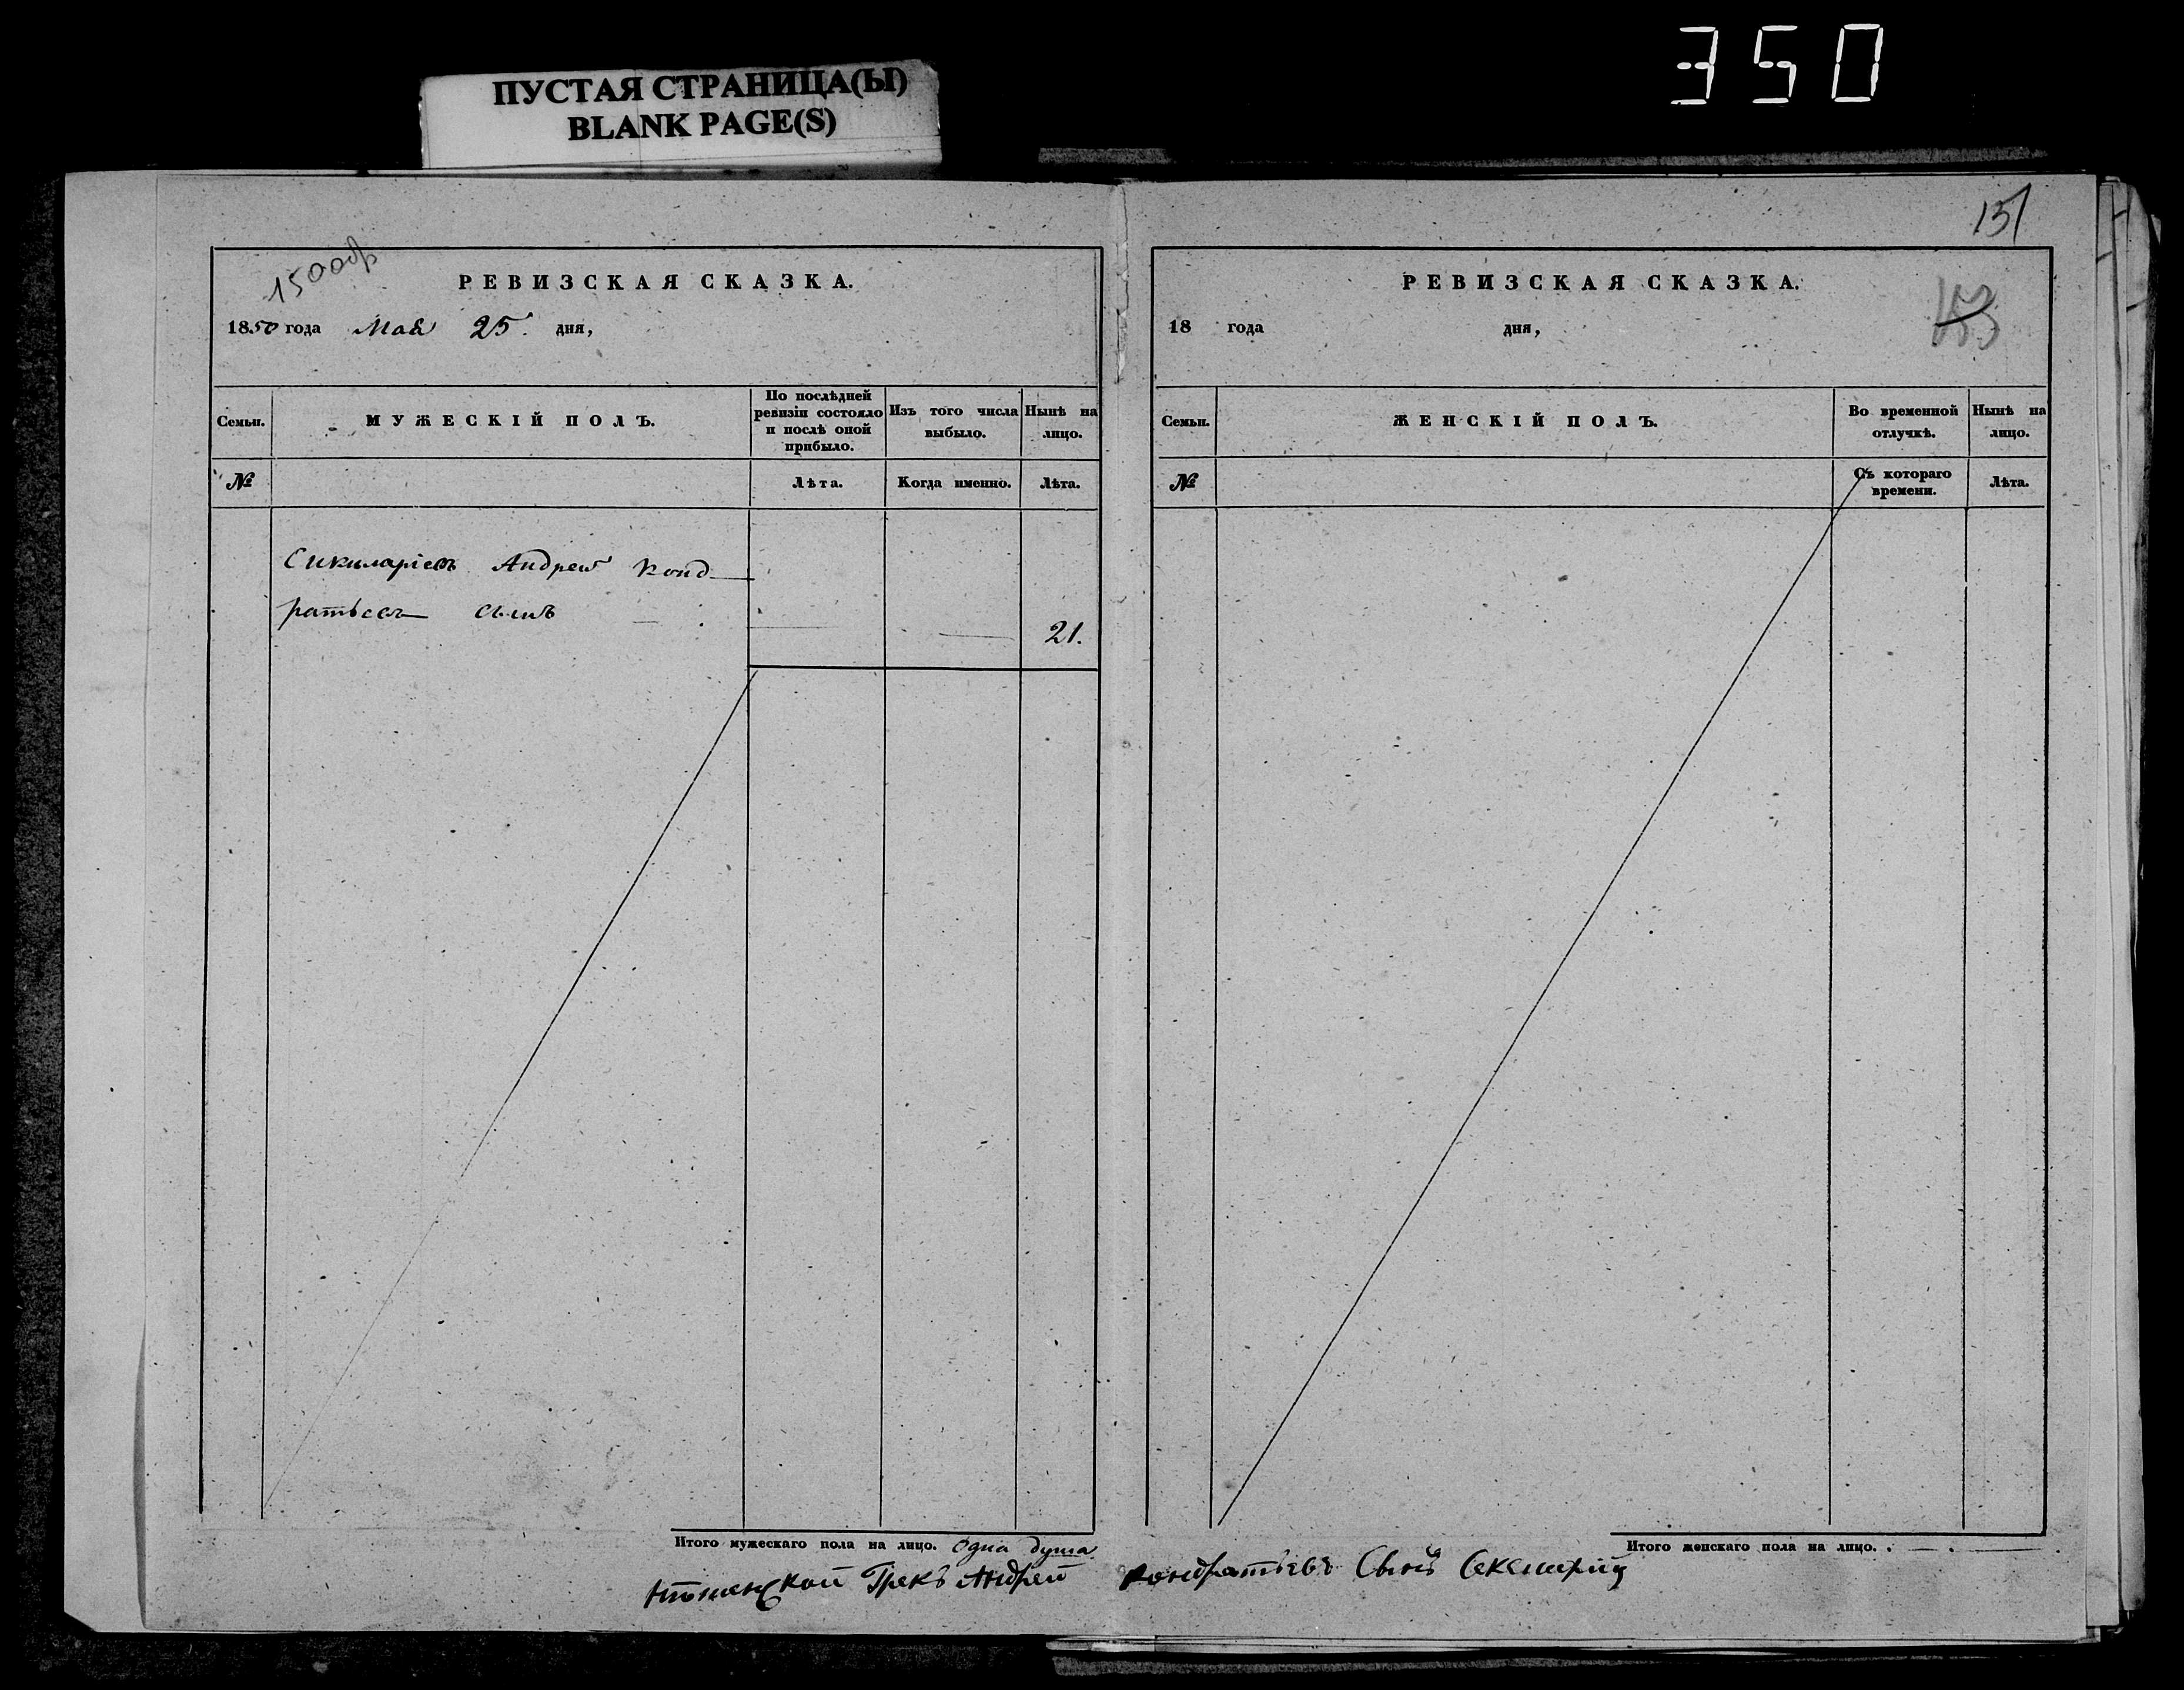 350
ПУСТАЯ СТРАНИЦА(Ы)
BLANK PAGE(S)
150 об
РЕВИЗСКАЯ СКАЗКА.
1850 года Мая 25. дня,
Семьи.
МУЖЕСКІЙ ПОЛЪ.
По послѣдней ревизіи состояло и послѣ оной прибыло.
Изъ того числа выбыло.
Нынѣ на лицо.
№
Лѣта.
Когда именно.
Лѣта.
Андрей Конд-
ратьевъ сынъ
21.
Итого мужескаго пола на лицо. Одна душа
151
РЕВИЗСКАЯ СКАЗКА.
18 года дня,
Семьи.
ЖЕНСКІЙ ПОЛЪ.
Во временной отлучкѣ.
Нынѣ на лицо.
№
Съ котораго времени.
Лѣта.
Итого женскаго пола на лицо.
Грекъ Андрей Кондратьевъ Сынъ